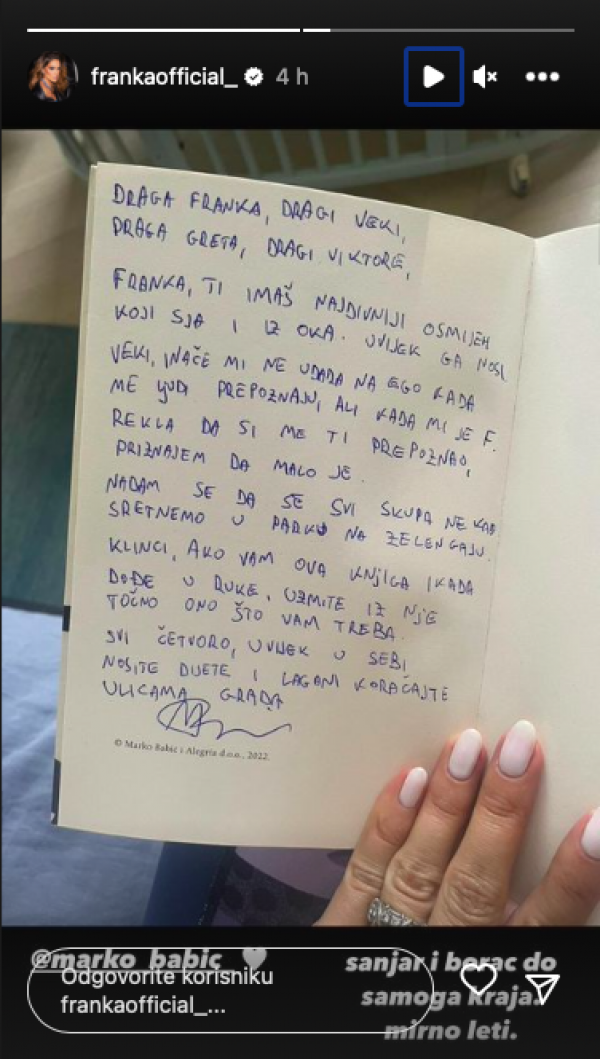 frankaofficial_ 4 h
DRAGA FRANKA, DRAGI VEKI,
DRAGA GRETA, DRAGI VIKTORE,
FRANKA, TI IMAŠ NAJDIVNIJI OSMIJEH
KOJI SJA I IZ OKA. UVIJEK GA NOSI
VEKI, INAČE MI NE UDARA NA EGO KADA
ME LJUDI PREPOZNAJU, ALI KADA MI JE F.
REKLA DA SI ME TI PREPOZNAO,
PRIZNAJEM DA MALO JE.
NADAM SE DA SE SVI SKUPA NEKAD
SRETNEMO U PARKU NA ZELENGAJU.
KLINCI, AKO VAM OVA KNJIGA IKADA
DOĐE U RUKE, UZMITE IZ NJE
TOČNO ONO ŠTO VAM TREBA.
SVI ČETVORO, UVIJEK U SEBI
NOSITE DIJETE I LAGANI KORAČAJTE
ULICAMA GRADA
© Marko Babić i Alegria d.o.o., 2022.
@marko_babic_
sanjar i borac do
samoga kraja.
mirno leti.
Odgovorite korisniku
frankaofficial_...